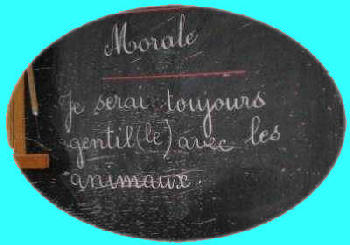 Morale
Je serai toujours
gentil(le) avec les
animaux.